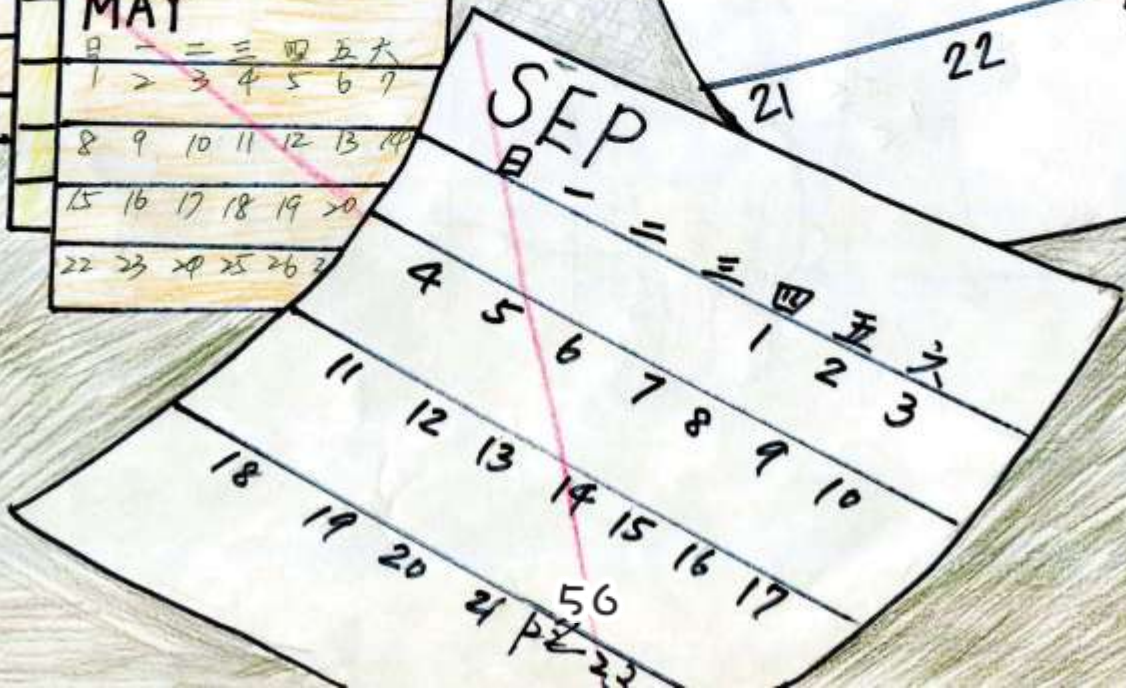 MAY
日 一 二 三 四 五 六
1 2 3 4 5 6 7
8 9 10 11 12 13 14
15 16 17 18 19 20
22 23 24 25 26
21 22
SEP
日 一 二 三 四 五 六
1 2 3
4 5 6 7 8 9 10
11 12 13 14 15 16 17
18 19 20 21 22 23
56